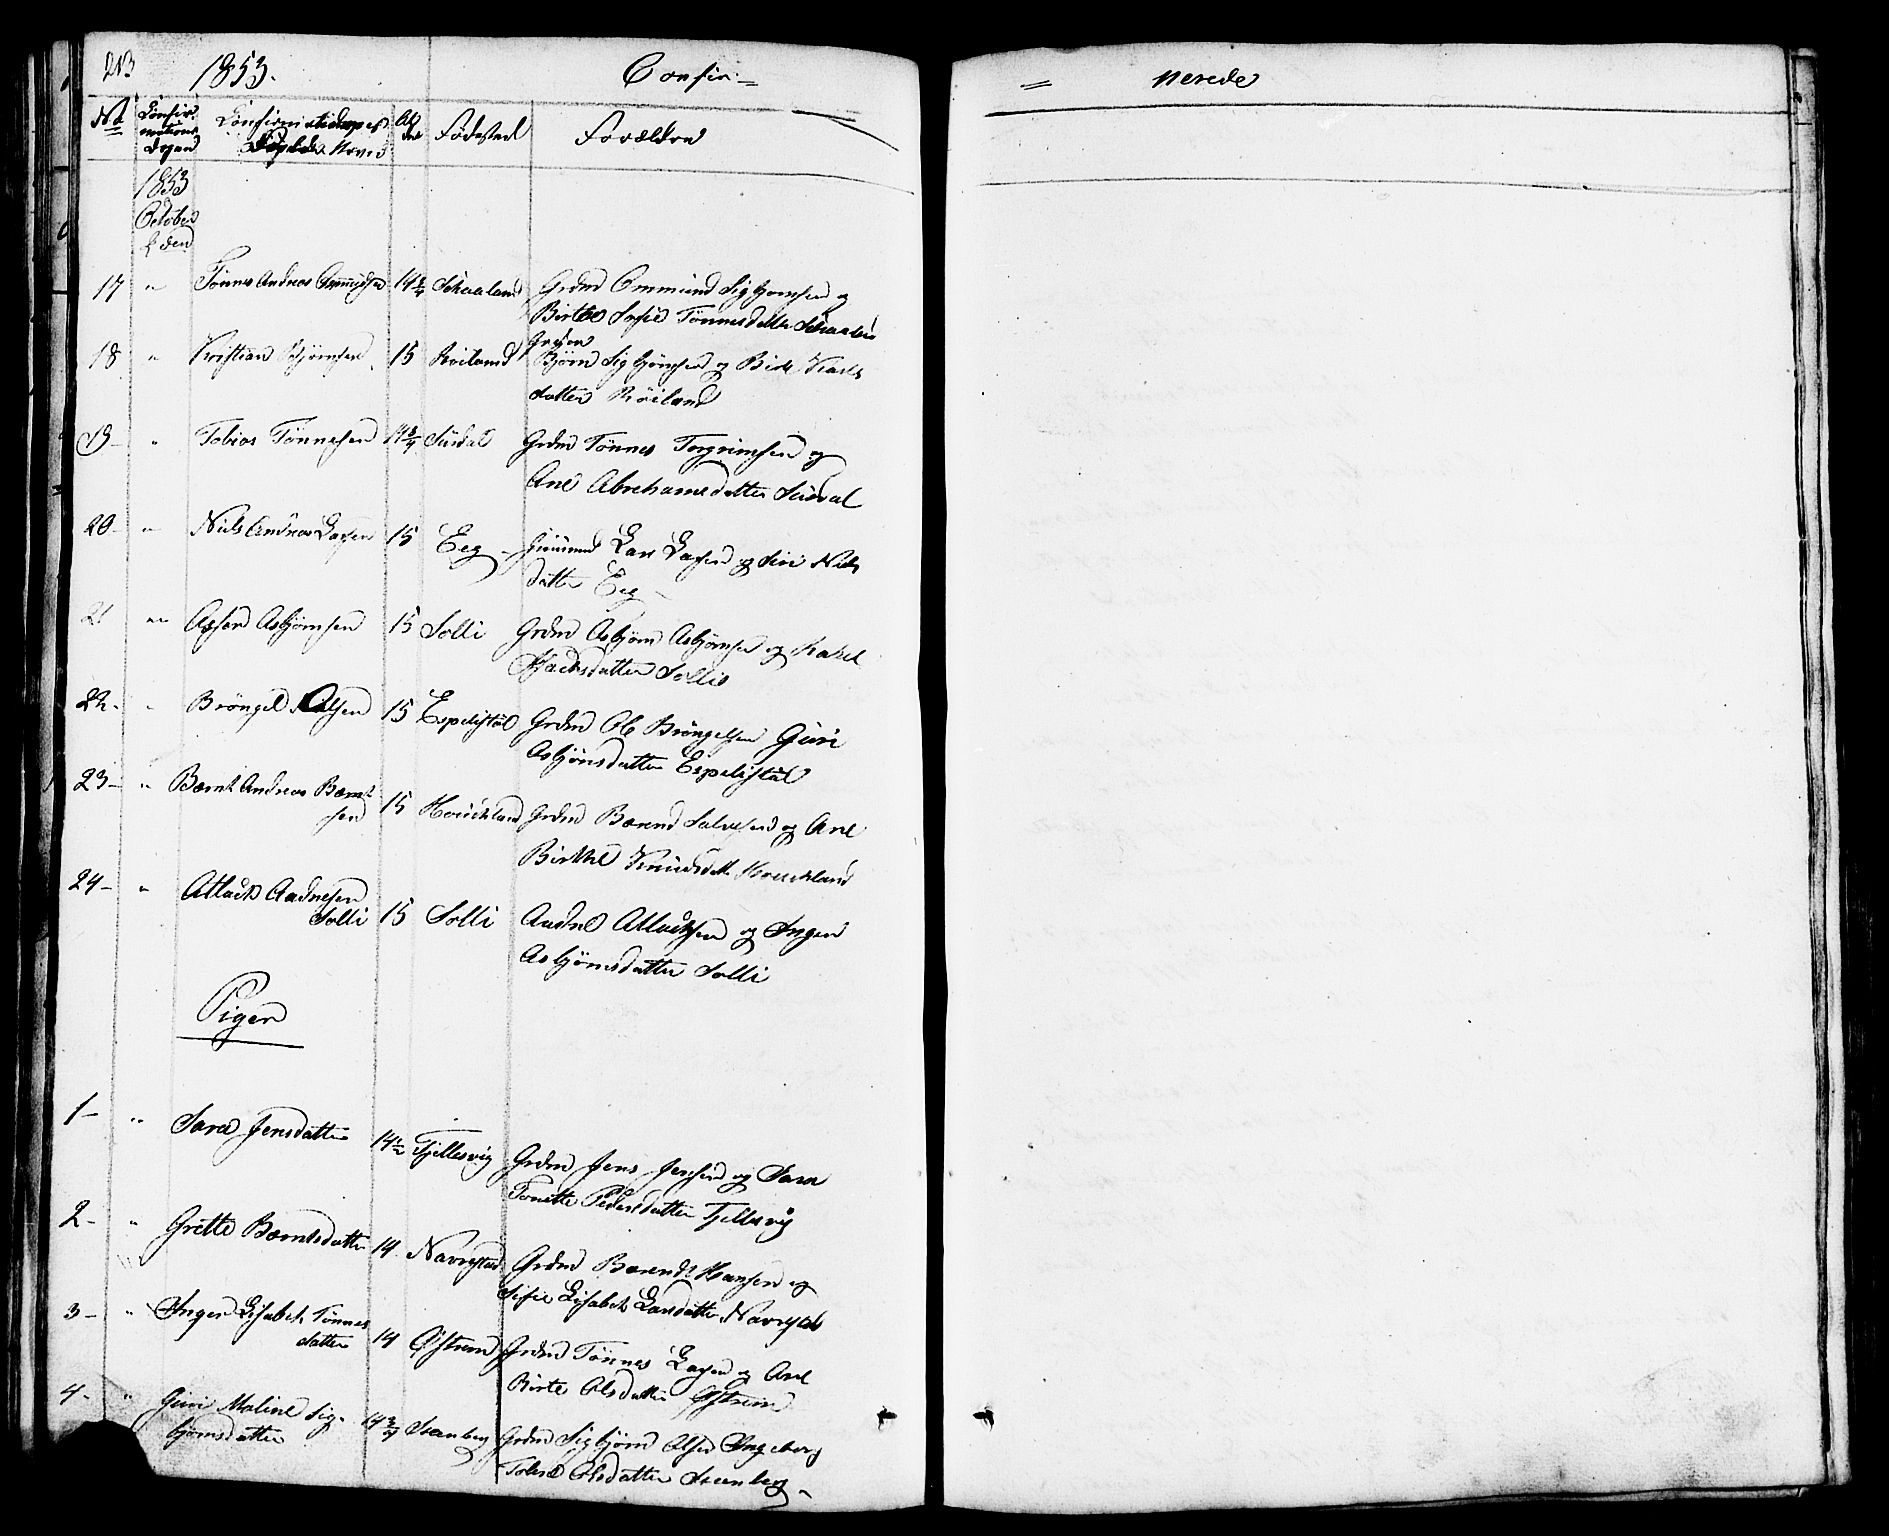 213 1853. Confir= = merede
No Confirmations Dagen Confirmandernes Navne Alder Fødested Forældre
1853
October
2 den
17 " Tønnes Andreas Ommundsen 14 3/4 Skaaland Grdmd Ommund Sigbjørnsen og
Birthe Sofie Tønnesdatter Skaaland
18 " Kristian Bjørnsen 15 Røiland Grdmd Bjørn Sigbjørnsen og Birte Karls
datter Røiland
19- " Tobias Tønnesen 14 3/4 Surdal Grdmd Tønnes Torgrimsen og
Ane Abrehamsdatter Surdal
20- " Niels Andreas Larsen 15 Eeg - Huusmd Lars Larsen og Siri Niels
datter Eeg -
21 " Asser Asbjørnsen 15 Solli Grdmd Asbjørn Asbjørnsen og Karel
datter Solli
22- " Brøngel Olsen 15 Espelistøl Grdmd Ole Brøngelsen Guri
Asbjønsdatter Espelistøl
23- " Bærnt Andreas Bærnt
sen 15 Hovuekland Grdmd Bærend Salvesen og Ane
Birthe Knudsdatt Hovuekland
24- " Atlack Aadnesen
Solli 15 Solli Aadne Atlacksen og Inger
Asbjørnsdatter Solli
Piger
1- " Sara Jensdatter 14 1/2 Tjellesvig Grdmd Jens Jensen og Sara
Tonette Pedersdatter Tjellesvig
2- " Grette Bærntsdatter 14 Navrestad Grdmd Barendt Hansen og
Sofie Lisabeth Larsdatter Navrestad
3- " Inger Lisabet Tønnes
datter 14 Østrem Grdmd Tønnes Larsen og Ane
Birte Olsdatter Østrem
4- " Guri Maline Sig-
bjørnsdatter 14 3/4 Steenberg Grdmd Sigbjørn Olsen Ingeborg
Tobine Olsdatter Steenberg -